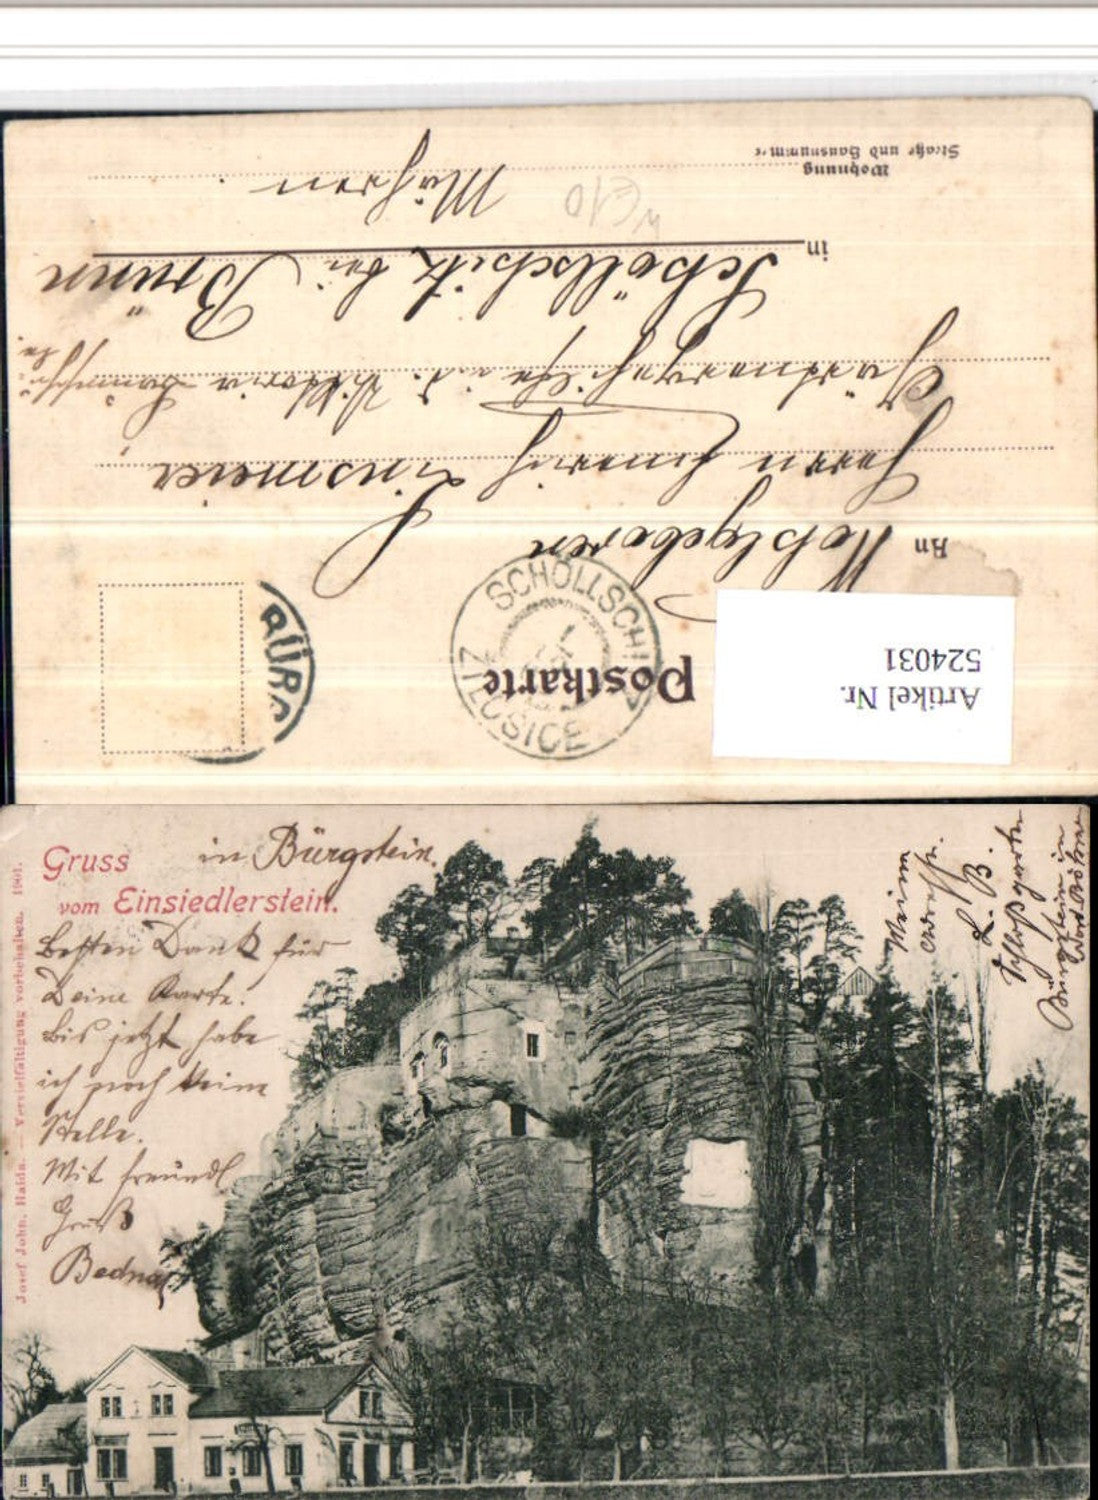 Postkarte
SCHÖLLSCHITZ
ŽELOSICE
BÜRG
Artikel Nr.
524031
An Wohlgeboren
Herrn Heinrich Linsmeier
Gärtnergehilfe i. d. Viktoria
in Schöllschitz bei Brünn
Mähren.
Wohnung
Straße und Hausnummer
Gruss in Bürgstein.
vom Einsiedlerstein.
Besten Dank für
Deine Karte.
Bis jetzt habe
ich noch keine
Stelle.
Mit freundl
Gruß
Bednař
Meine
Adresse.
L. B.
Schloßgarten
Bürgstein in
Nord Böhmen
Josef John, Haida. — Vervielfältigung vorbehalten. 1901.